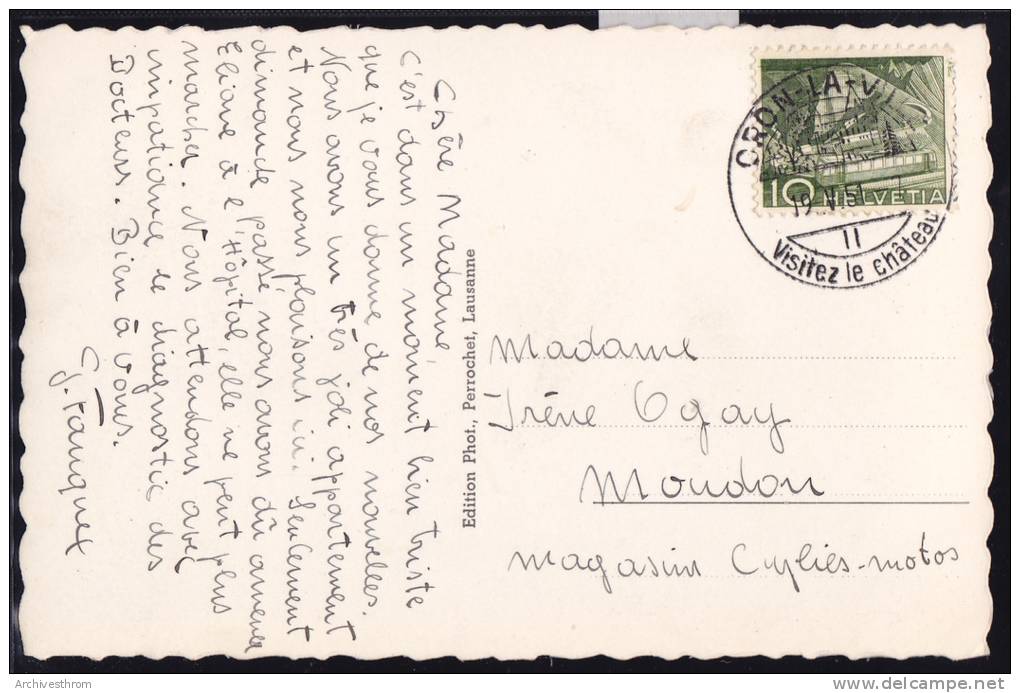 Chère Madame,
C'est dans un moment bien triste
que je vous donne de nos nouvelles.
Nous avons un très joli appartement
et nous nous plaisons ici. Seulement
dimanche passé nous avons dû amener
Eliane à l'Hôpital, elle ne peut plus
marcher. Nous attendons avec
impatience le diagnostic des
Docteurs. Bien à vous.
Edition Phot., Perrochet, Lausanne
ORON-LA-V
10 HELVETIA
19.V.51
11
Visitez le château
Madame
Irène Ogay
Moudon
magasin
Archivesthrom
www.delcampe.net